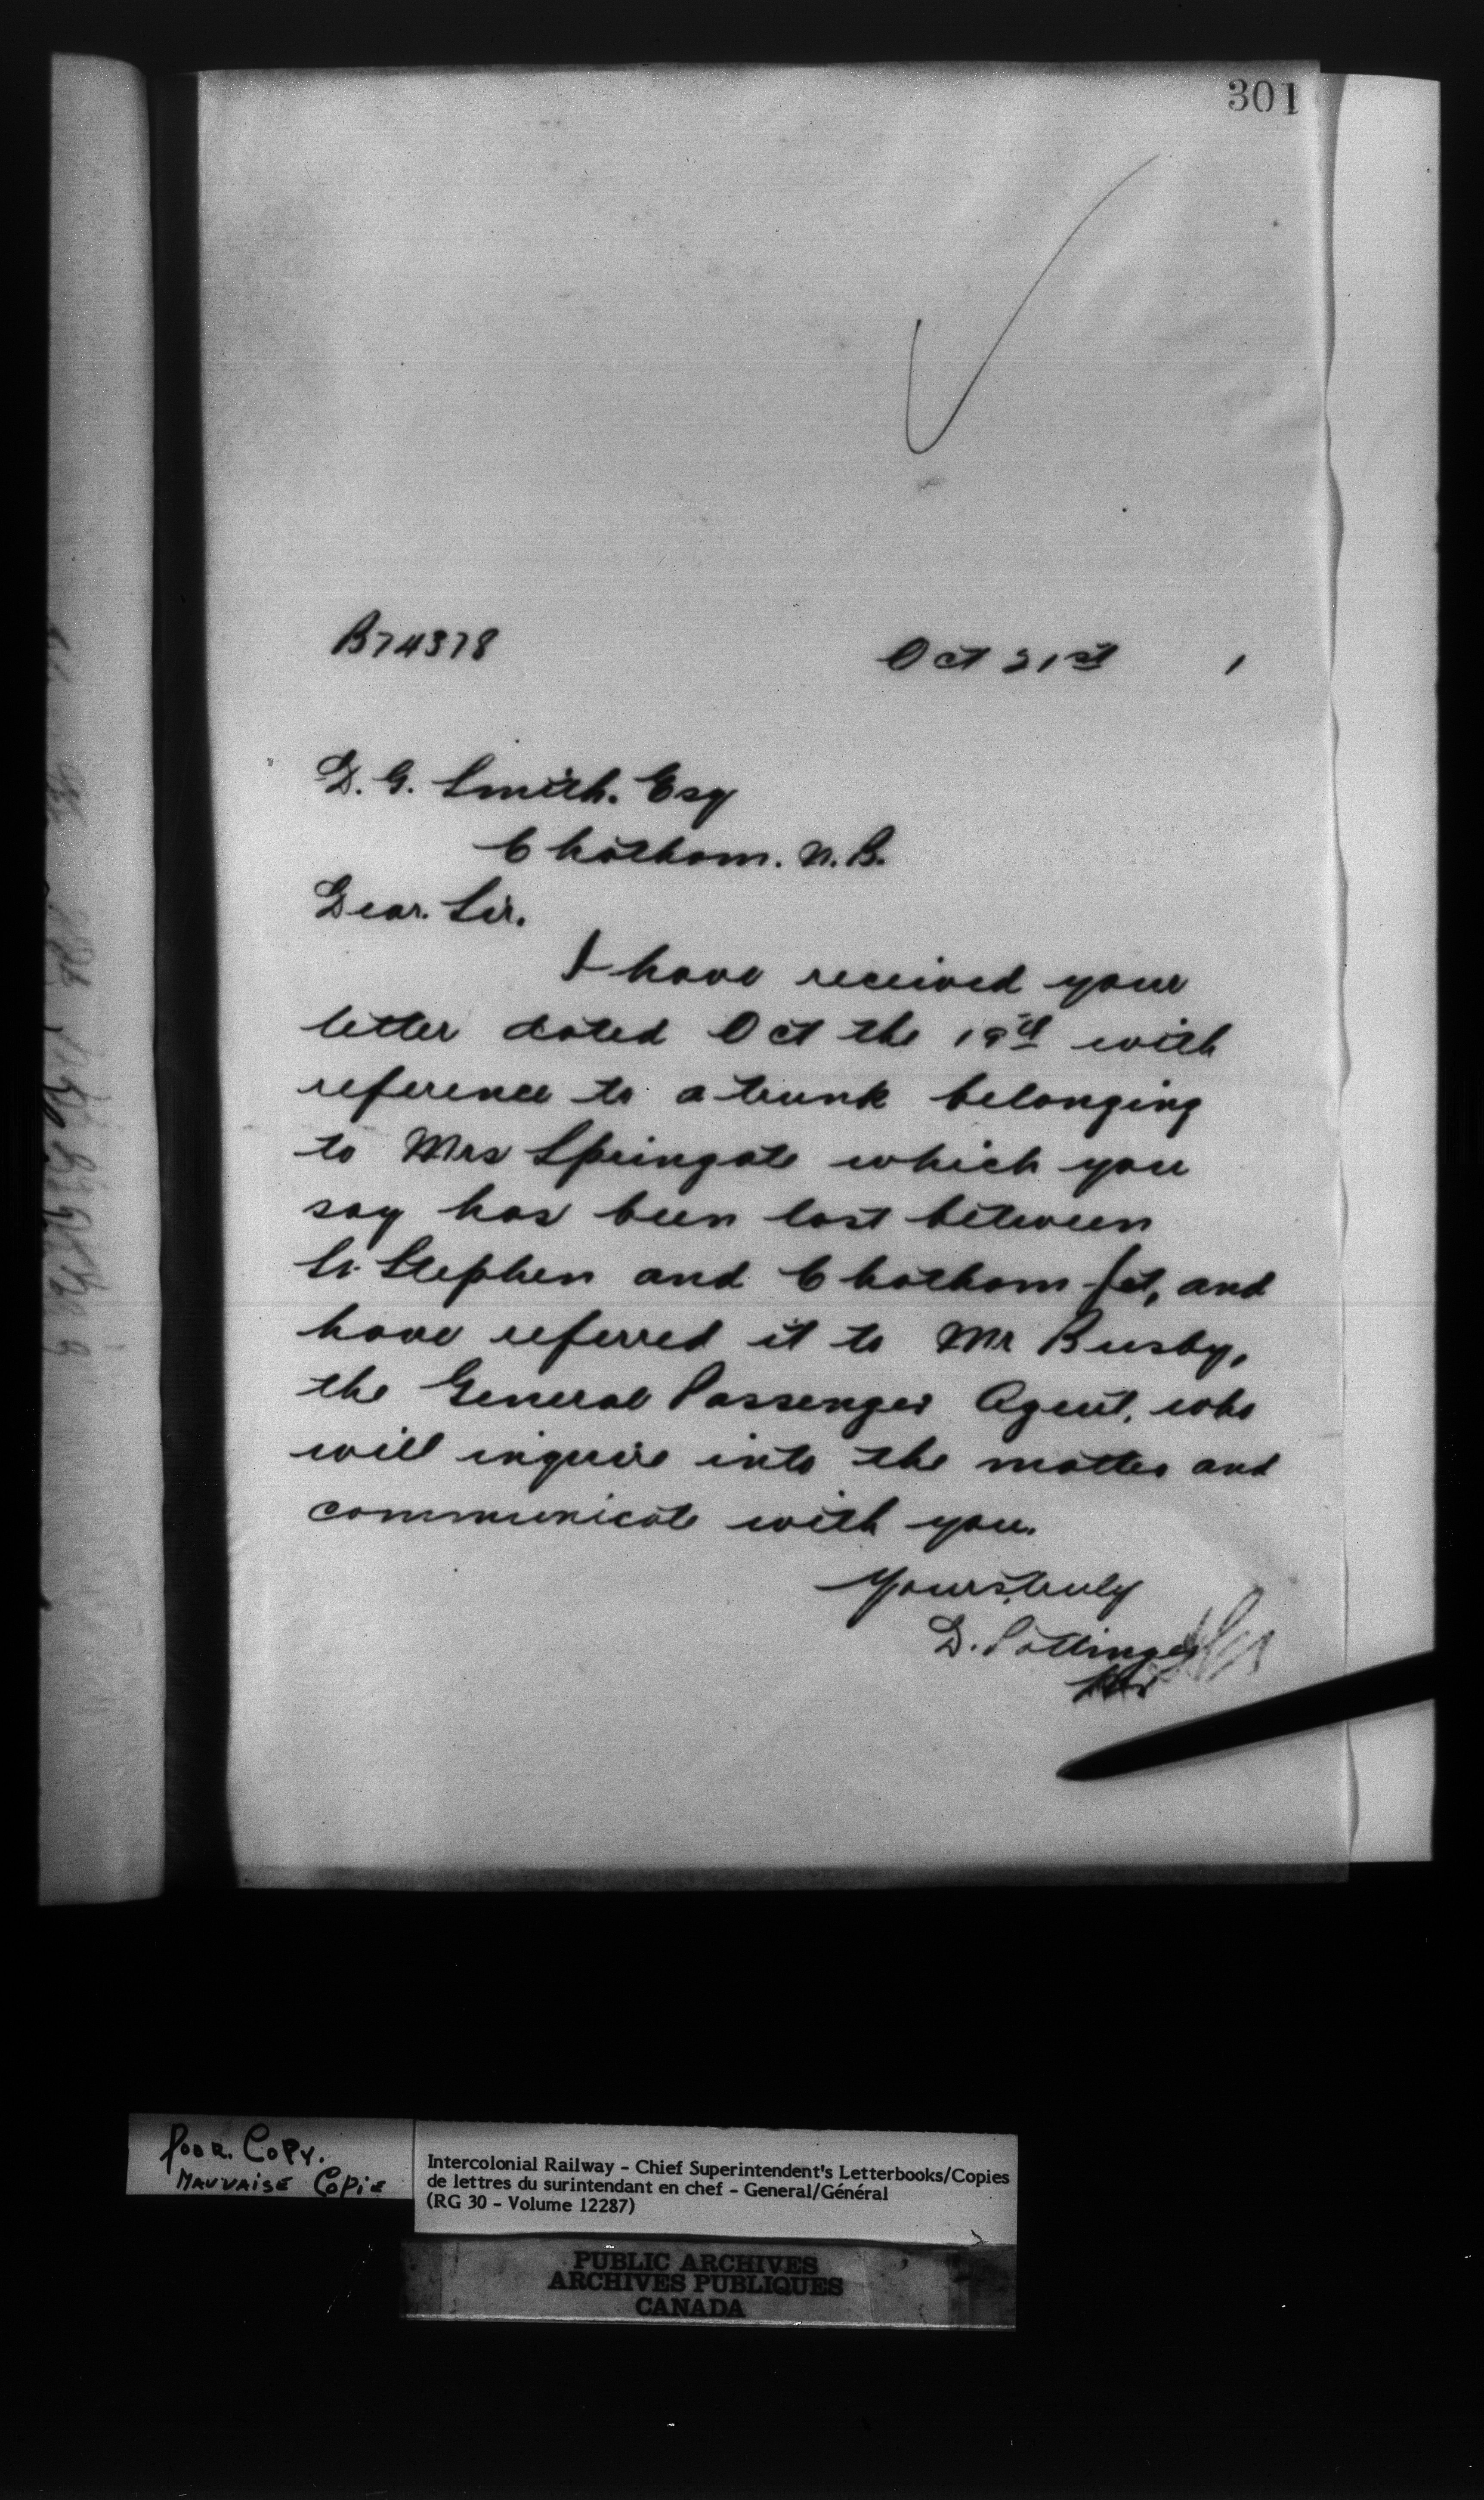 301
B74378
Oct 21st 1
D. G. Smith. Esq
Chatham. N.B.
Dear. Sir.
I have received your
letter dated Oct the 19th with
reference to a trunk belonging
to Mrs Springate which you
say has been lost between
St. Stephen and Chatham Jct, and
have referred it to Mr Busby,
the General Passenger Agent, who
will inquire into the matter and
communicate with you.
Yours truly
D. Pottinger
Poor. Copy.
Mauvaise Copie
Intercolonial Railway – Chief Superintendent's Letterbooks/Copies
de lettres du surintendant en chef – General/Général
(RG 30 – Volume 12287)
PUBLIC ARCHIVES
ARCHIVES PUBLIQUES
CANADA